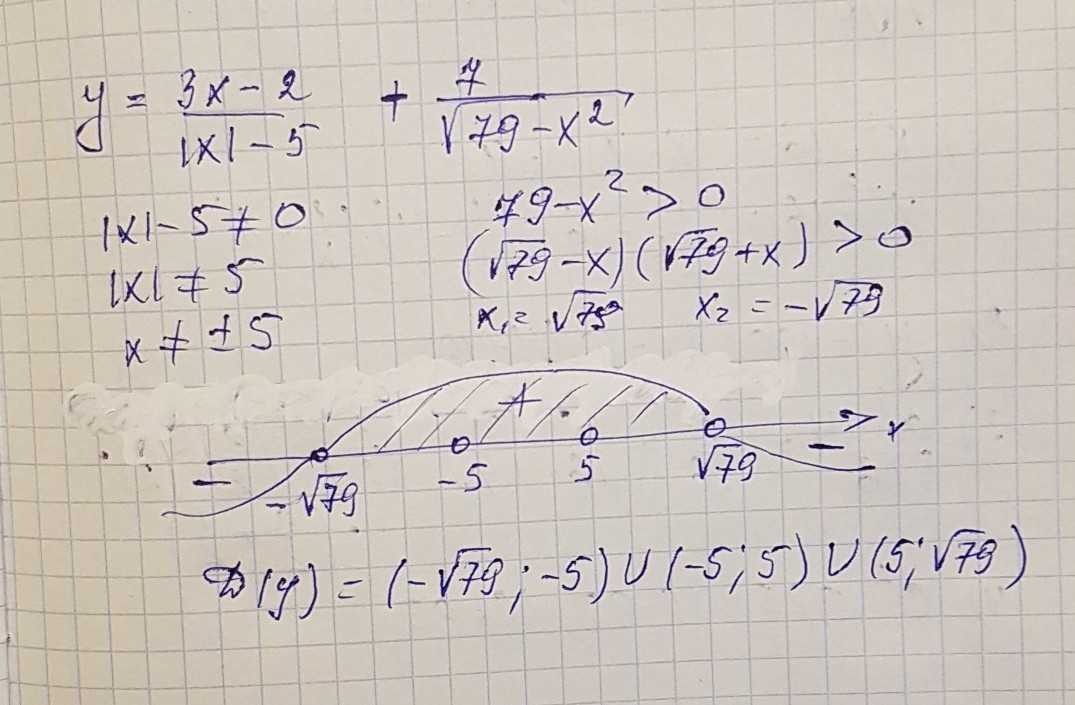 y = (3x - 2)/(|x| - 5) + 7/√(79 - x²)
|x| - 5 ≠ 0 79 - x² > 0
|x| ≠ 5 (√79 - x)(√79 + x) > 0
x ≠ ± 5 x₁ = √79 x₂ = -√79
+
- - x
-√79 -5 5 √79
D(y) = (-√79; -5) ∪ (-5; 5) ∪ (5; √79)